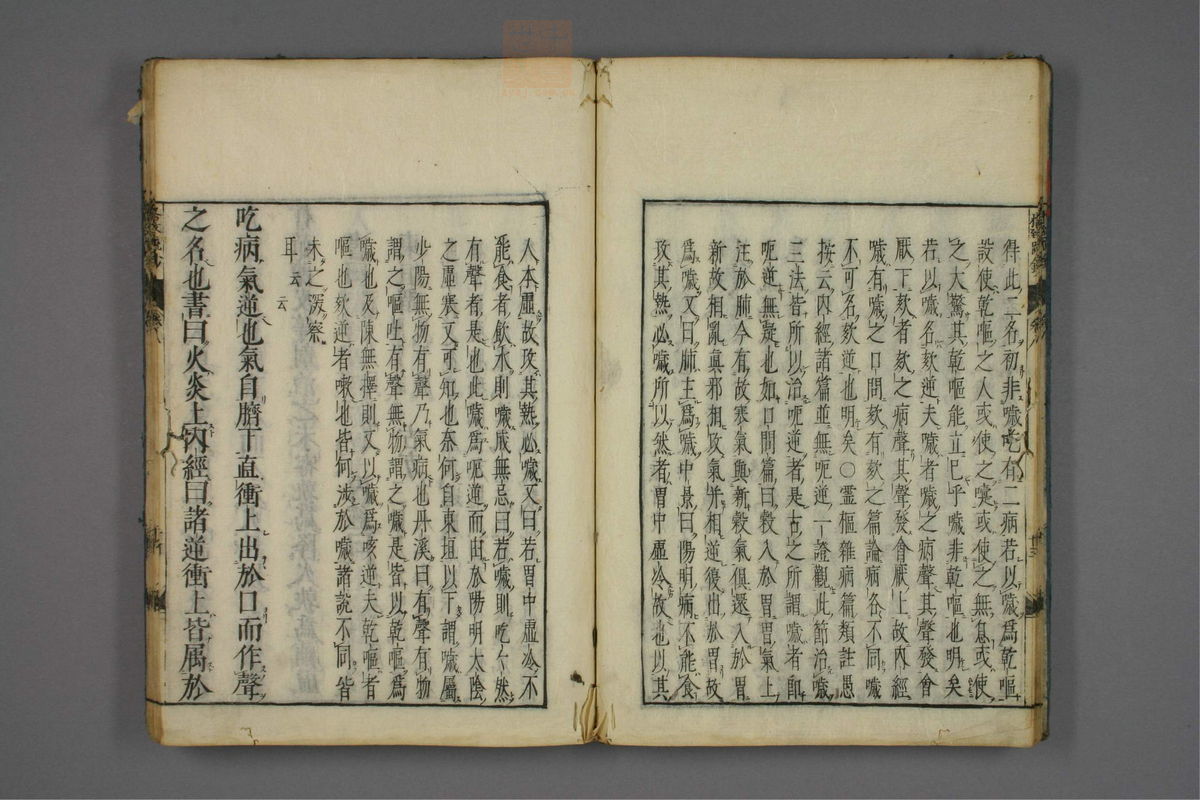 得此二名初非噦吃有二病若以噦爲乾嘔
設使乾嘔之人或使之嚏或使之無息或使
之大驚其乾嘔能立已乎噦非乾嘔也明矣
若以噦名欬逆夫噦者噦之病聲其聲發會
厭下欬者欬之病聲其聲發會厭上故内經
噦有噦之口問欬有欬之篇論病各不同噦
不可名欬逆也明矣○靈樞雜病篇類註愚
按云内經諸篇並無呃逆一證觀此節治噦
三法皆所以治呃逆者是古之所謂噦者即
呃逆無疑也如口問篇曰穀入於胃胃氣上
注於肺今有故寒氣與新穀氣俱還入於胃
新故相亂眞邪相攻氣并相逆復出於胃故
爲噦又曰肺主爲噦仲景曰陽明病不能食
攻其熱必噦所以然者胃中虛冷故也以其
人本虛故攻其熱必噦又曰若胃中虛冷不
能食者飲水則噦戒無忌曰若噦則吃吃然
有聲者是也此噦爲呃逆而由於陽明太陰
之虛寒又可知也奈何自東垣以下謂噦屬
少陽無物有聲乃氣病也丹溪曰有聲有物
謂之嘔吐有聲無物謂之噦是皆以乾嘔爲
噦也及陳無擇則又以噦爲咳逆夫乾嘔者
嘔也欬逆者嗽也皆何渉於噦諸説不同皆
未之深察
耳云云
吃病氣逆也氣自臍下直衝上出於口而作聲
之名也書曰火炎上内經曰諸逆衝上皆属於